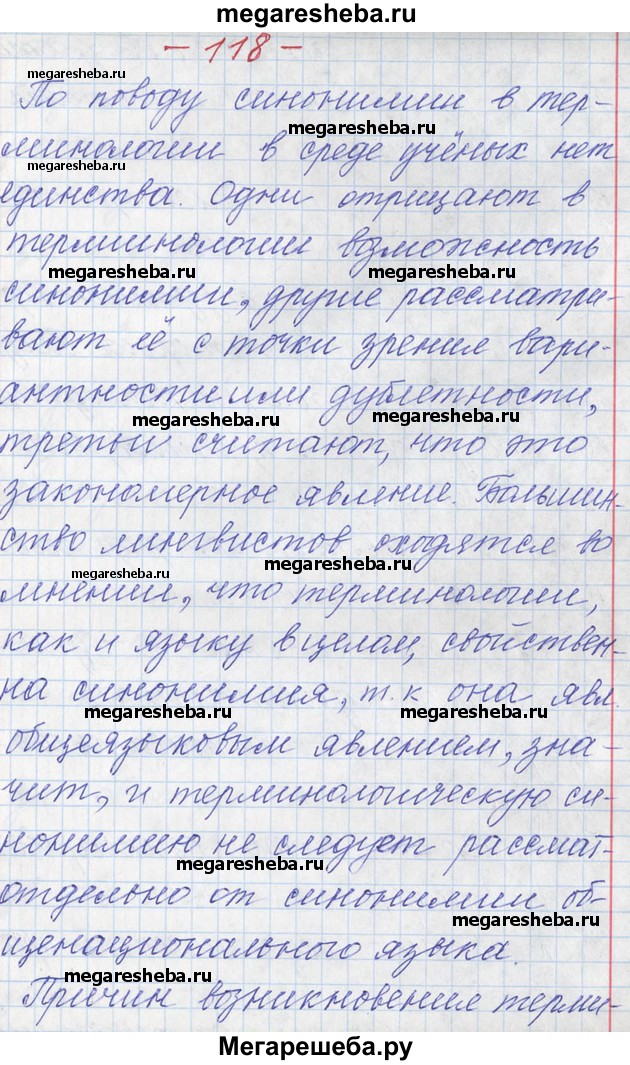 megaresheba.ru
- 118 -
megaresheba.ru
По поводу синонимии в тер-
megaresheba.ru
минологии в среде учёных нет
megaresheba.ru
единства. Одни отрицают в
терминологии возможность
megaresheba.ru megaresheba.ru
синонимии, другие рассматри-
вают её с точки зрения вари-
антности или дублетности,
megaresheba.ru megaresheba.ru
третьи считают, что это
закономерное явление. Большин-
ство лингвистов сходятся во
megaresheba.ru
мнении, что терминологии,
как и языку в целом, свойствен-
на синонимия, т.к она явл.
megaresheba.ru megaresheba.ru
общеязыковым явлением, зна-
чит, и терминологическую си-
нонимию не следует рассмат-
megaresheba.ru
отдельно от синонимии об-
megaresheba.ru
щенационального языка.
megaresheba.ru
Причин возникновения терми-
Мегарешеба.ру